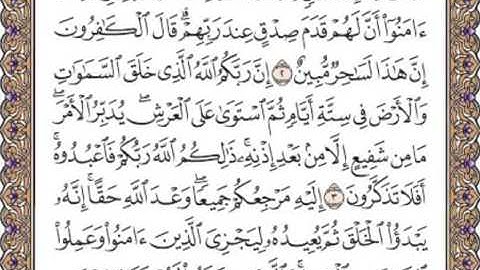 ءَامَنُوٓا۟ أَنَّ لَهُمْ قَدَمَ صِدْقٍ عِندَ رَبِّهِمْ ۗ قَالَ ٱلْكَـٰفِرُونَ
إِنَّ هَـٰذَا لَسَـٰحِرٌ مُّبِينٌ ٢ إِنَّ رَبَّكُمُ ٱللَّهُ ٱلَّذِى خَلَقَ ٱلسَّمَـٰوَٰتِ
وَٱلْأَرْضَ فِى سِتَّةِ أَيَّامٍ ثُمَّ ٱسْتَوَىٰ عَلَى ٱلْعَرْشِ ۖ يُدَبِّرُ ٱلْأَمْرَ ۖ
مَا مِن شَفِيعٍ إِلَّا مِنۢ بَعْدِ إِذْنِهِۦ ۚ ذَٰلِكُمُ ٱللَّهُ رَبُّكُمْ فَٱعْبُدُوهُ ۚ
أَفَلَا تَذَكَّرُونَ ٣ إِلَيْهِ مَرْجِعُكُمْ جَمِيعًا ۖ وَعْدَ ٱللَّهِ حَقًّا ۚ إِنَّهُۥ
يَبْدَؤُا۟ ٱلْخَلْقَ ثُمَّ يُعِيدُهُۥ لِيَجْزِىَ ٱلَّذِينَ ءَامَنُوا۟ وَعَمِلُوا۟